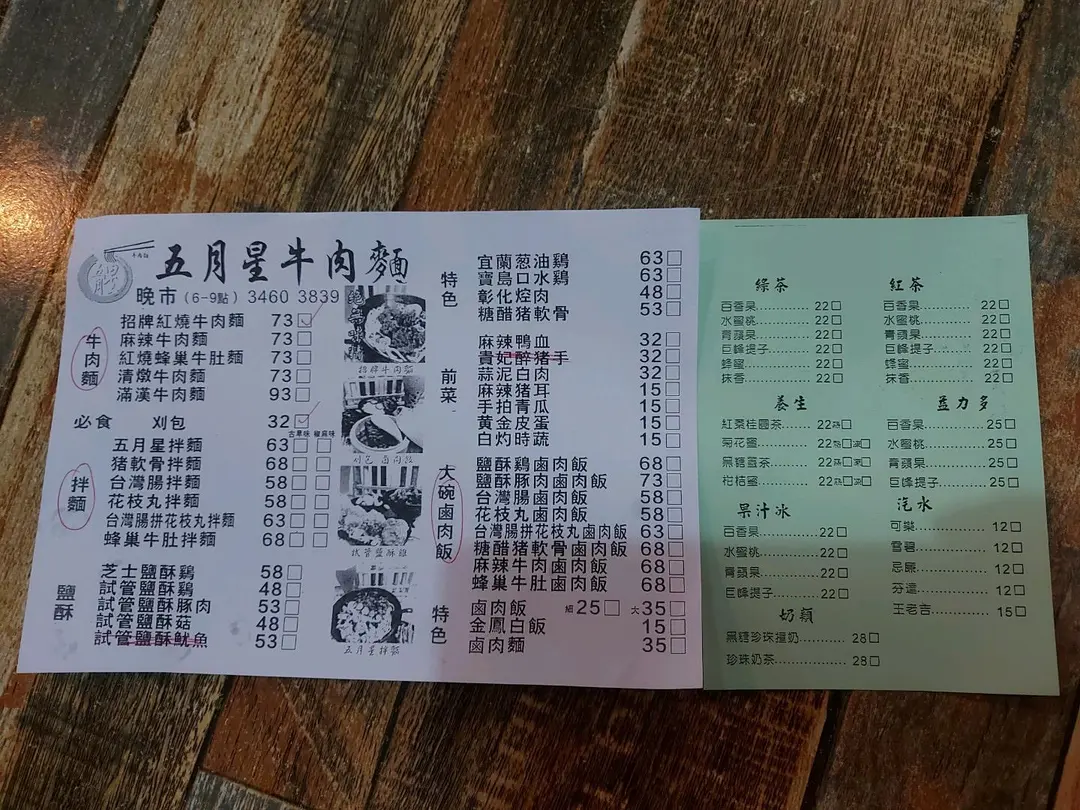 五月星牛肉麵
晚市(6-9點) 3460 3839
牛肉麵
招牌紅燒牛肉麵 73
麻辣牛肉麵 73
紅燒蜂巢牛肚麵 73
清燉牛肉麵 73
滿漢牛肉麵 93
必食 刈包 32
古早味 椒麻味
拌麵
五月星拌麵 63
猪軟骨拌麵 68
台灣腸拌麵 58
花枝丸拌麵 58
台灣腸拼花枝丸拌麵 63
蜂巢牛肚拌麵 68
鹽酥
芝士鹽酥鷄 58
試管鹽酥鷄 48
試管鹽酥豚肉 53
試管鹽酥菇 48
試管鹽酥魷魚 53
招牌牛肉麵
試管鹽酥雞
五月星拌麵
特色
宜蘭葱油鷄 63
寶島口水鷄 63
彰化焢肉 48
糖醋猪軟骨 53
前菜
麻辣鴨血 32
貴妃醉猪手 32
蒜泥白肉 32
麻辣猪耳 15
手拍青瓜 15
黄金皮蛋 15
白灼時蔬 15
大碗鹵肉飯
鹽酥鷄鹵肉飯 68
鹽酥豚肉鹵肉飯 73
台灣腸鹵肉飯 58
花枝丸鹵肉飯 58
台灣腸拼花枝丸鹵肉飯 63
糖醋猪軟骨鹵肉飯 68
麻辣牛肉鹵肉飯 68
蜂巢牛肚鹵肉飯 68
特色
鹵肉飯 細25 大35
金鳳白飯 15
鹵肉麵 35
綠茶
百香果 22
水蜜桃 22
青蘋果 22
巨峰提子 22
蜂蜜 22
抹香 22
紅茶
百香果 22
水蜜桃 22
青蘋果 22
巨峰提子 22
蜂蜜 22
抹香 22
養生
紅棗桂圓茶 22熱
菊花蜜 22熱 凍
黑糖薑茶 22熱 凍
柑桔蜜 22熱 凍
益力多
百香果 25
水蜜桃 25
青蘋果 25
巨峰提子 25
果汁冰
百香果 22
水蜜桃 22
青蘋果 22
巨峰提子 22
汽水
可樂 12
雪碧 12
忌廉 12
芬達 12
王老吉 15
奶類
黑糖珍珠撞奶 28
珍珠奶茶 28